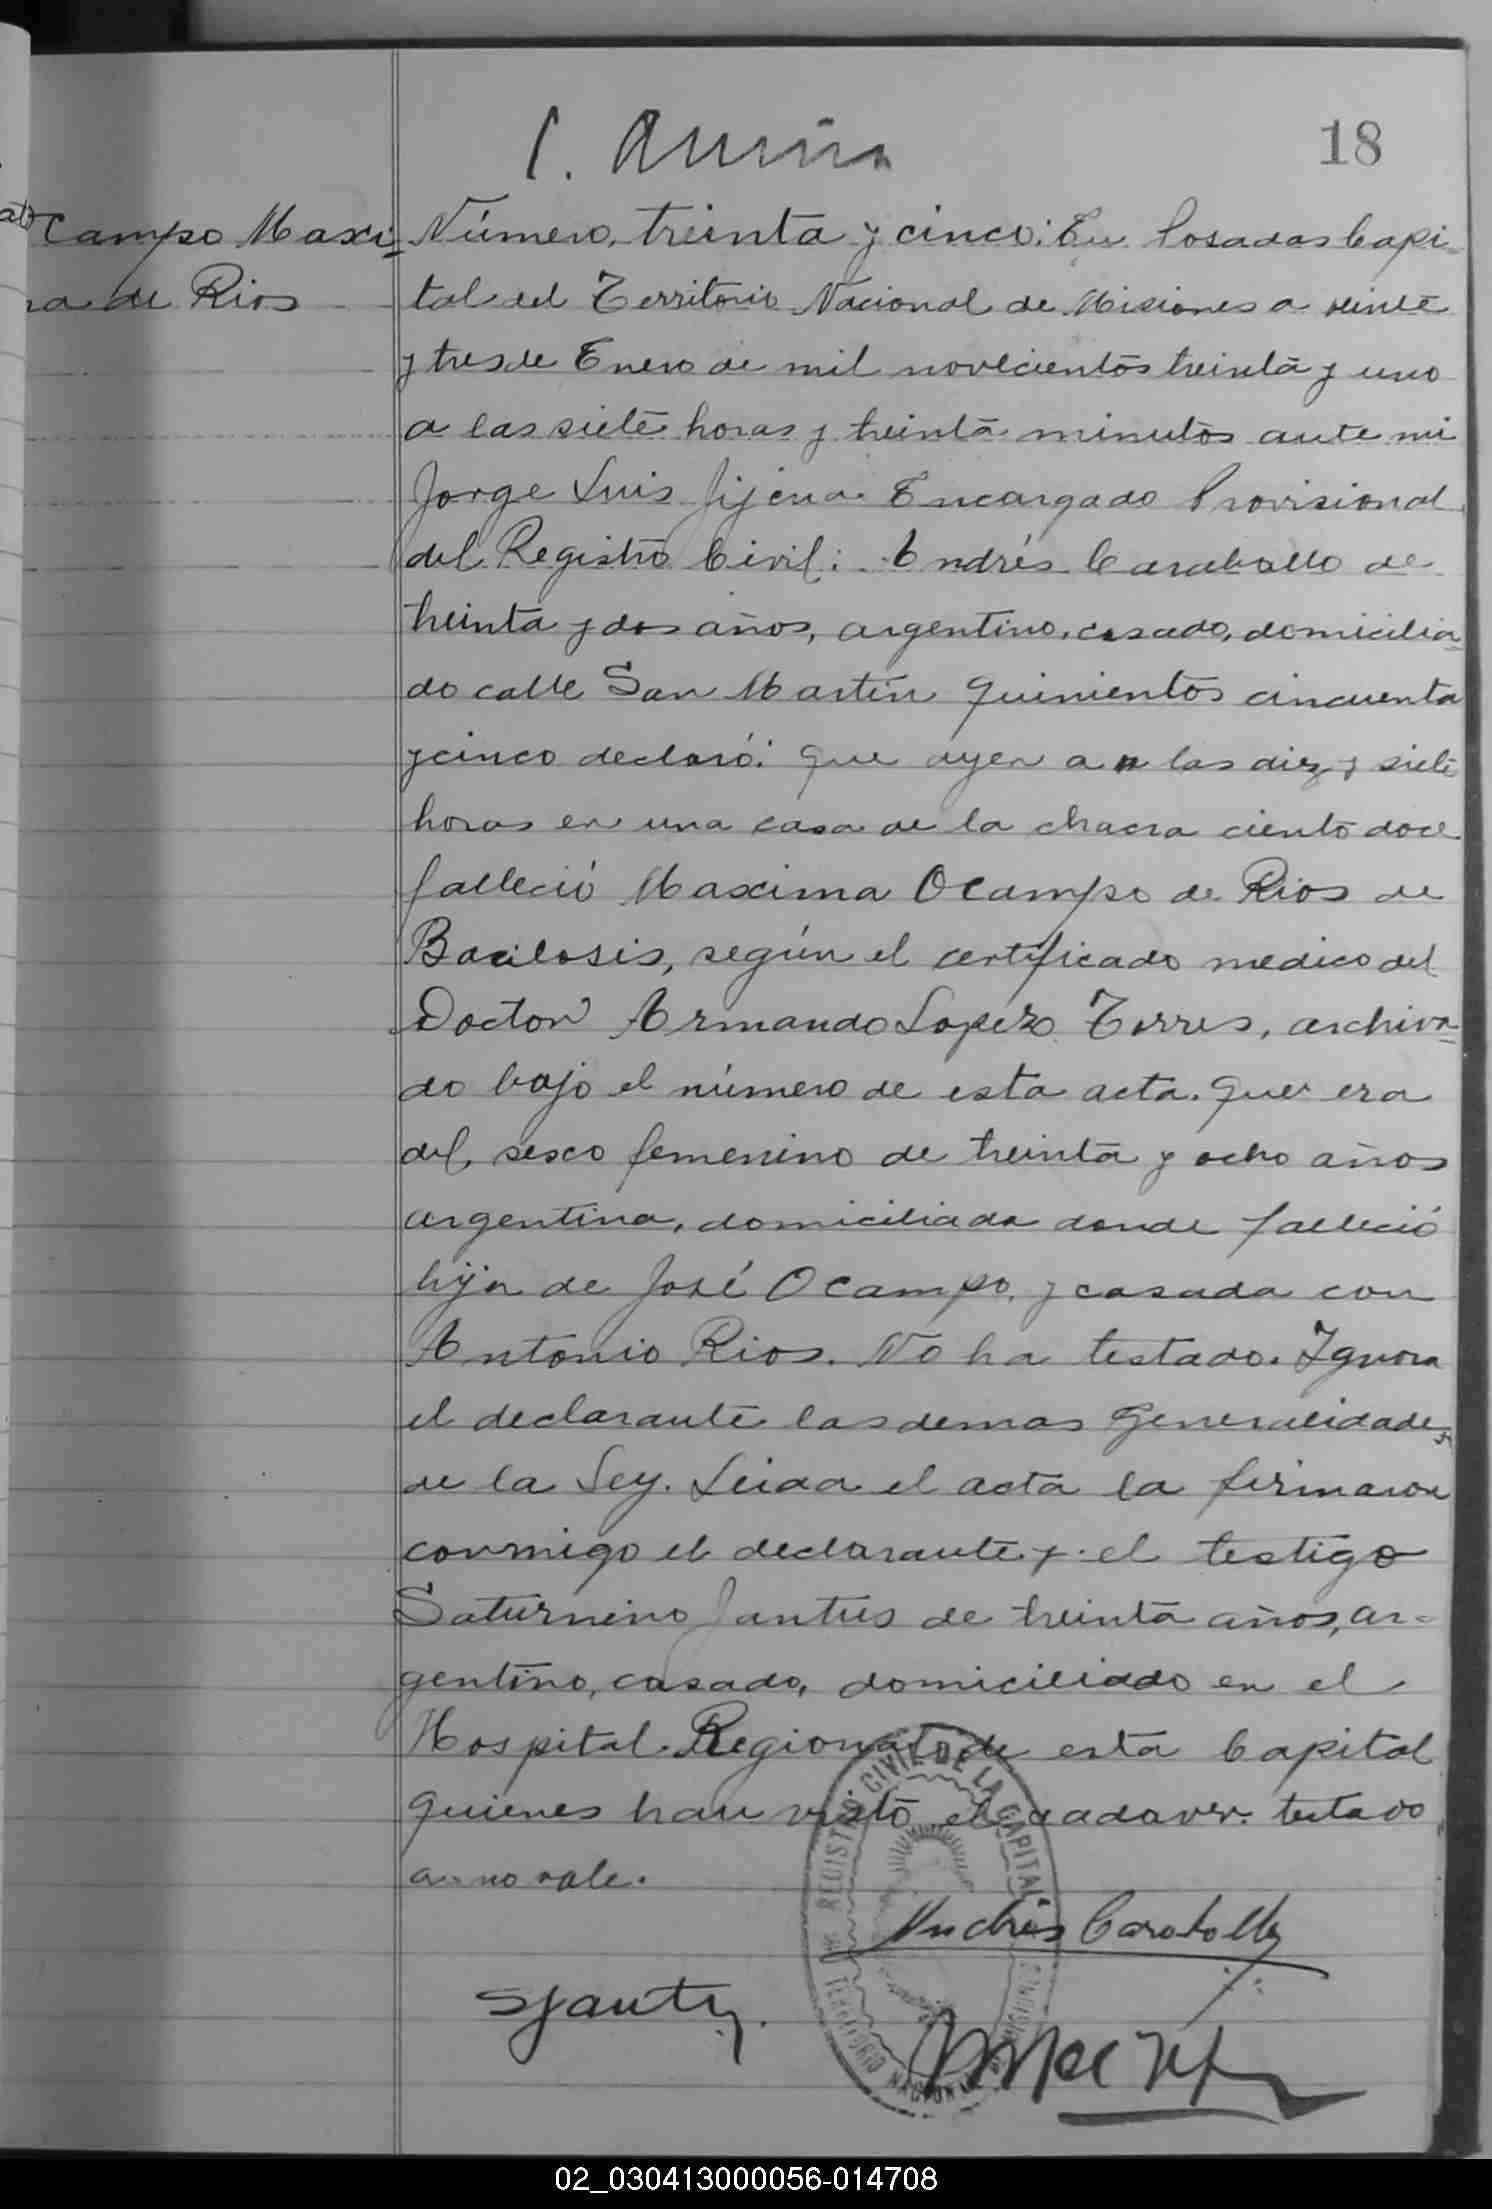 18
Campo Maxi- Número, treinta y cinco: En Posadas Capi-
na de Rios tal del Territorio Nacional de Misiones a veinte
y tres de Enero de mil novecientos treinta y uno
a las siete horas y treinta minutos ante mi
Jorge Luis Jijena Encargado Provisional
del Registro Civil: Andrés Caraballo de
treinta y dos años, argentino, casado, domicilia-
do calle San Martin quinientos cincuenta
y cinco declaró: que ayer a las diez y siete
horas en una casa de la chacra ciento doce
falleció Maxima Ocampo de Rios de
Bacilosis, según el certificado medico del
Doctor Armando Lopez Torres, archiva-
do bajo el número de esta acta. Que era
del sexo femenino de treinta y ocho años
argentina, domiciliada donde falleció
hija de José Ocampo, y casada con
Antonio Rios. No ha testado. Ignora
el declarante las demas generalidades
de la Ley. Leida el acta la firmaron
conmigo el declarante y el testigo
Saturnino Jantus de treinta años, ar-
gentino, casado, domiciliado en el
Hospital Regional de esta Capital
quienes han visto el cadaver. testado
a no vale.
REGISTRO CIVIL DE LA CAPITAL
TERRITORIO NACIONAL DE MISIONES
Andrés Caraballo
SJantus
02_030413000056-014708